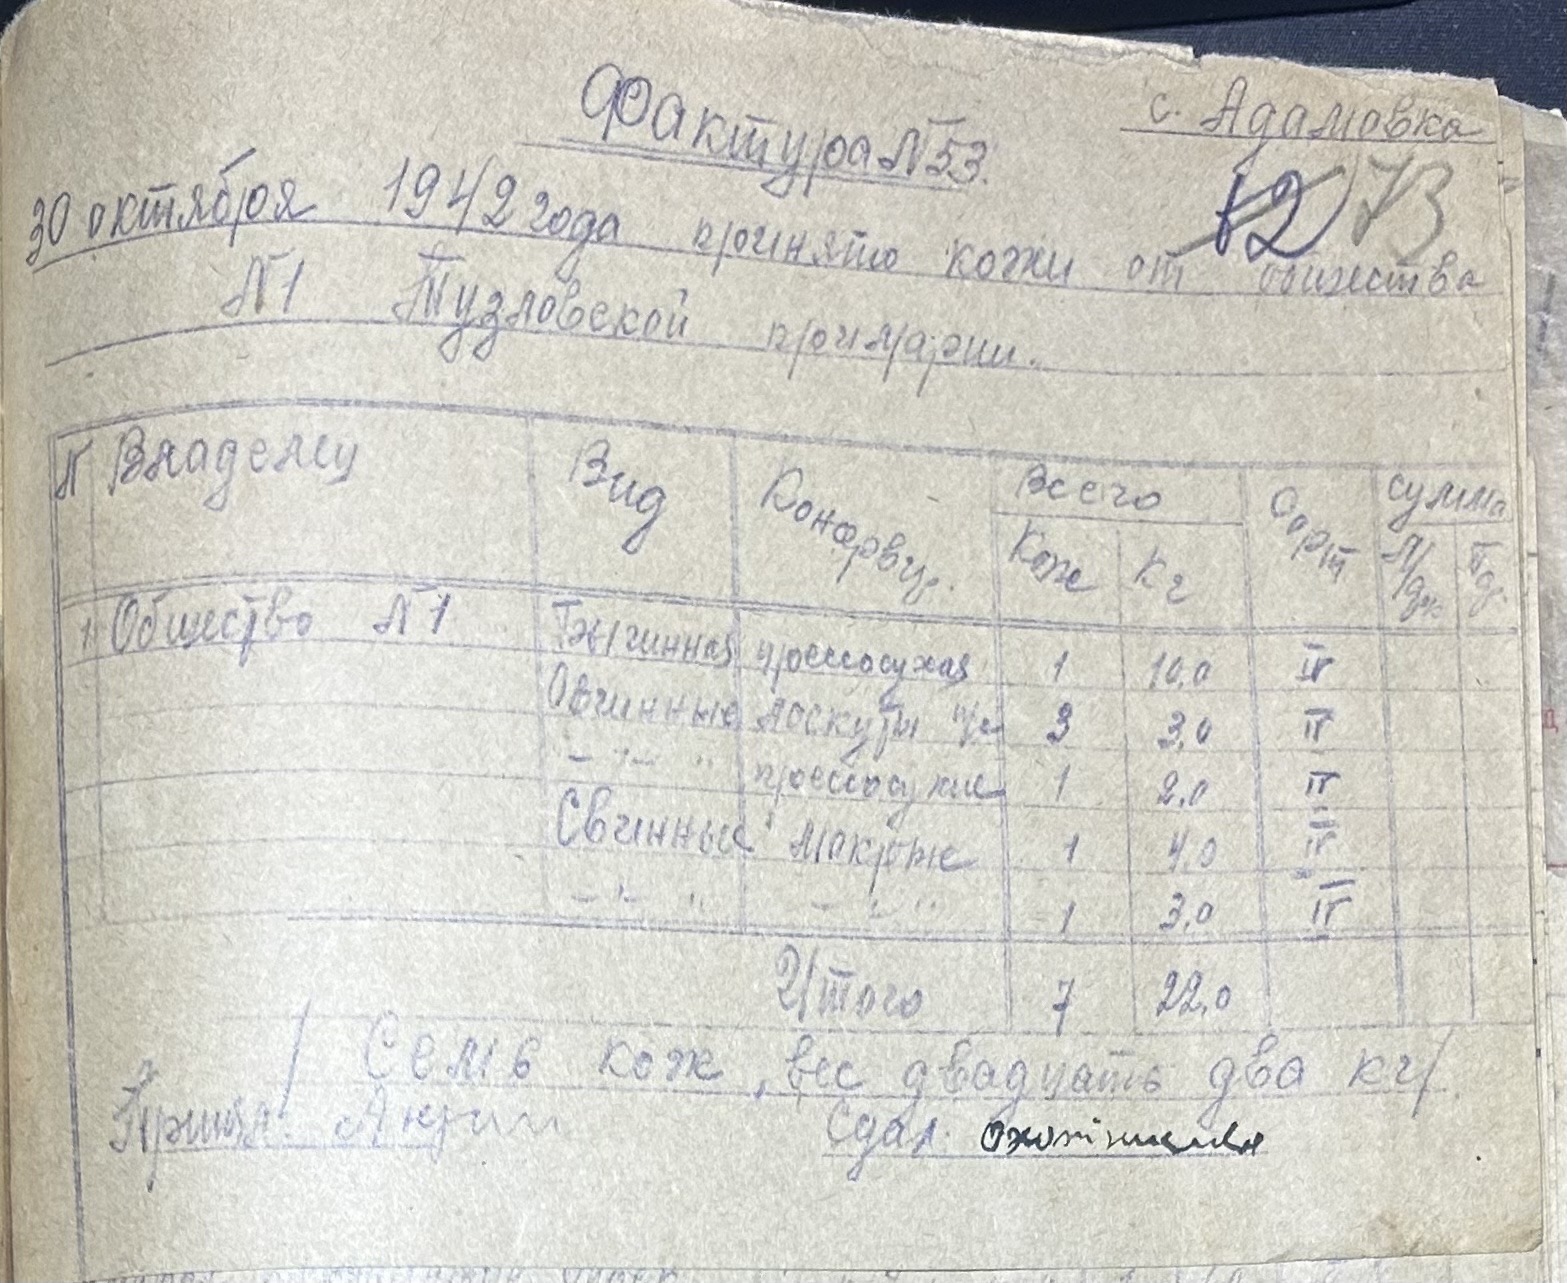 с. Адамовка
Фактура № 53.
12 73
30 октября 1942 года принято кожи от общества
№ 1 Тузловской примарии.
N Владелец Вид Консервир. Всего Сорт сумма
Кож Кг
1 Общество № 1 Бычинная прессосухая 1 10,0 II
Овчинные лоскуты п/с 3 3,0 II
-"- " прессосухие 1 2,0 II
Свинные мокрые 1 4,0 II
-"- " -"- " 1 3,0 II
Итого 7 22,0
/ Семь кож, вес двадцать два кг/
Принял: Сдал: